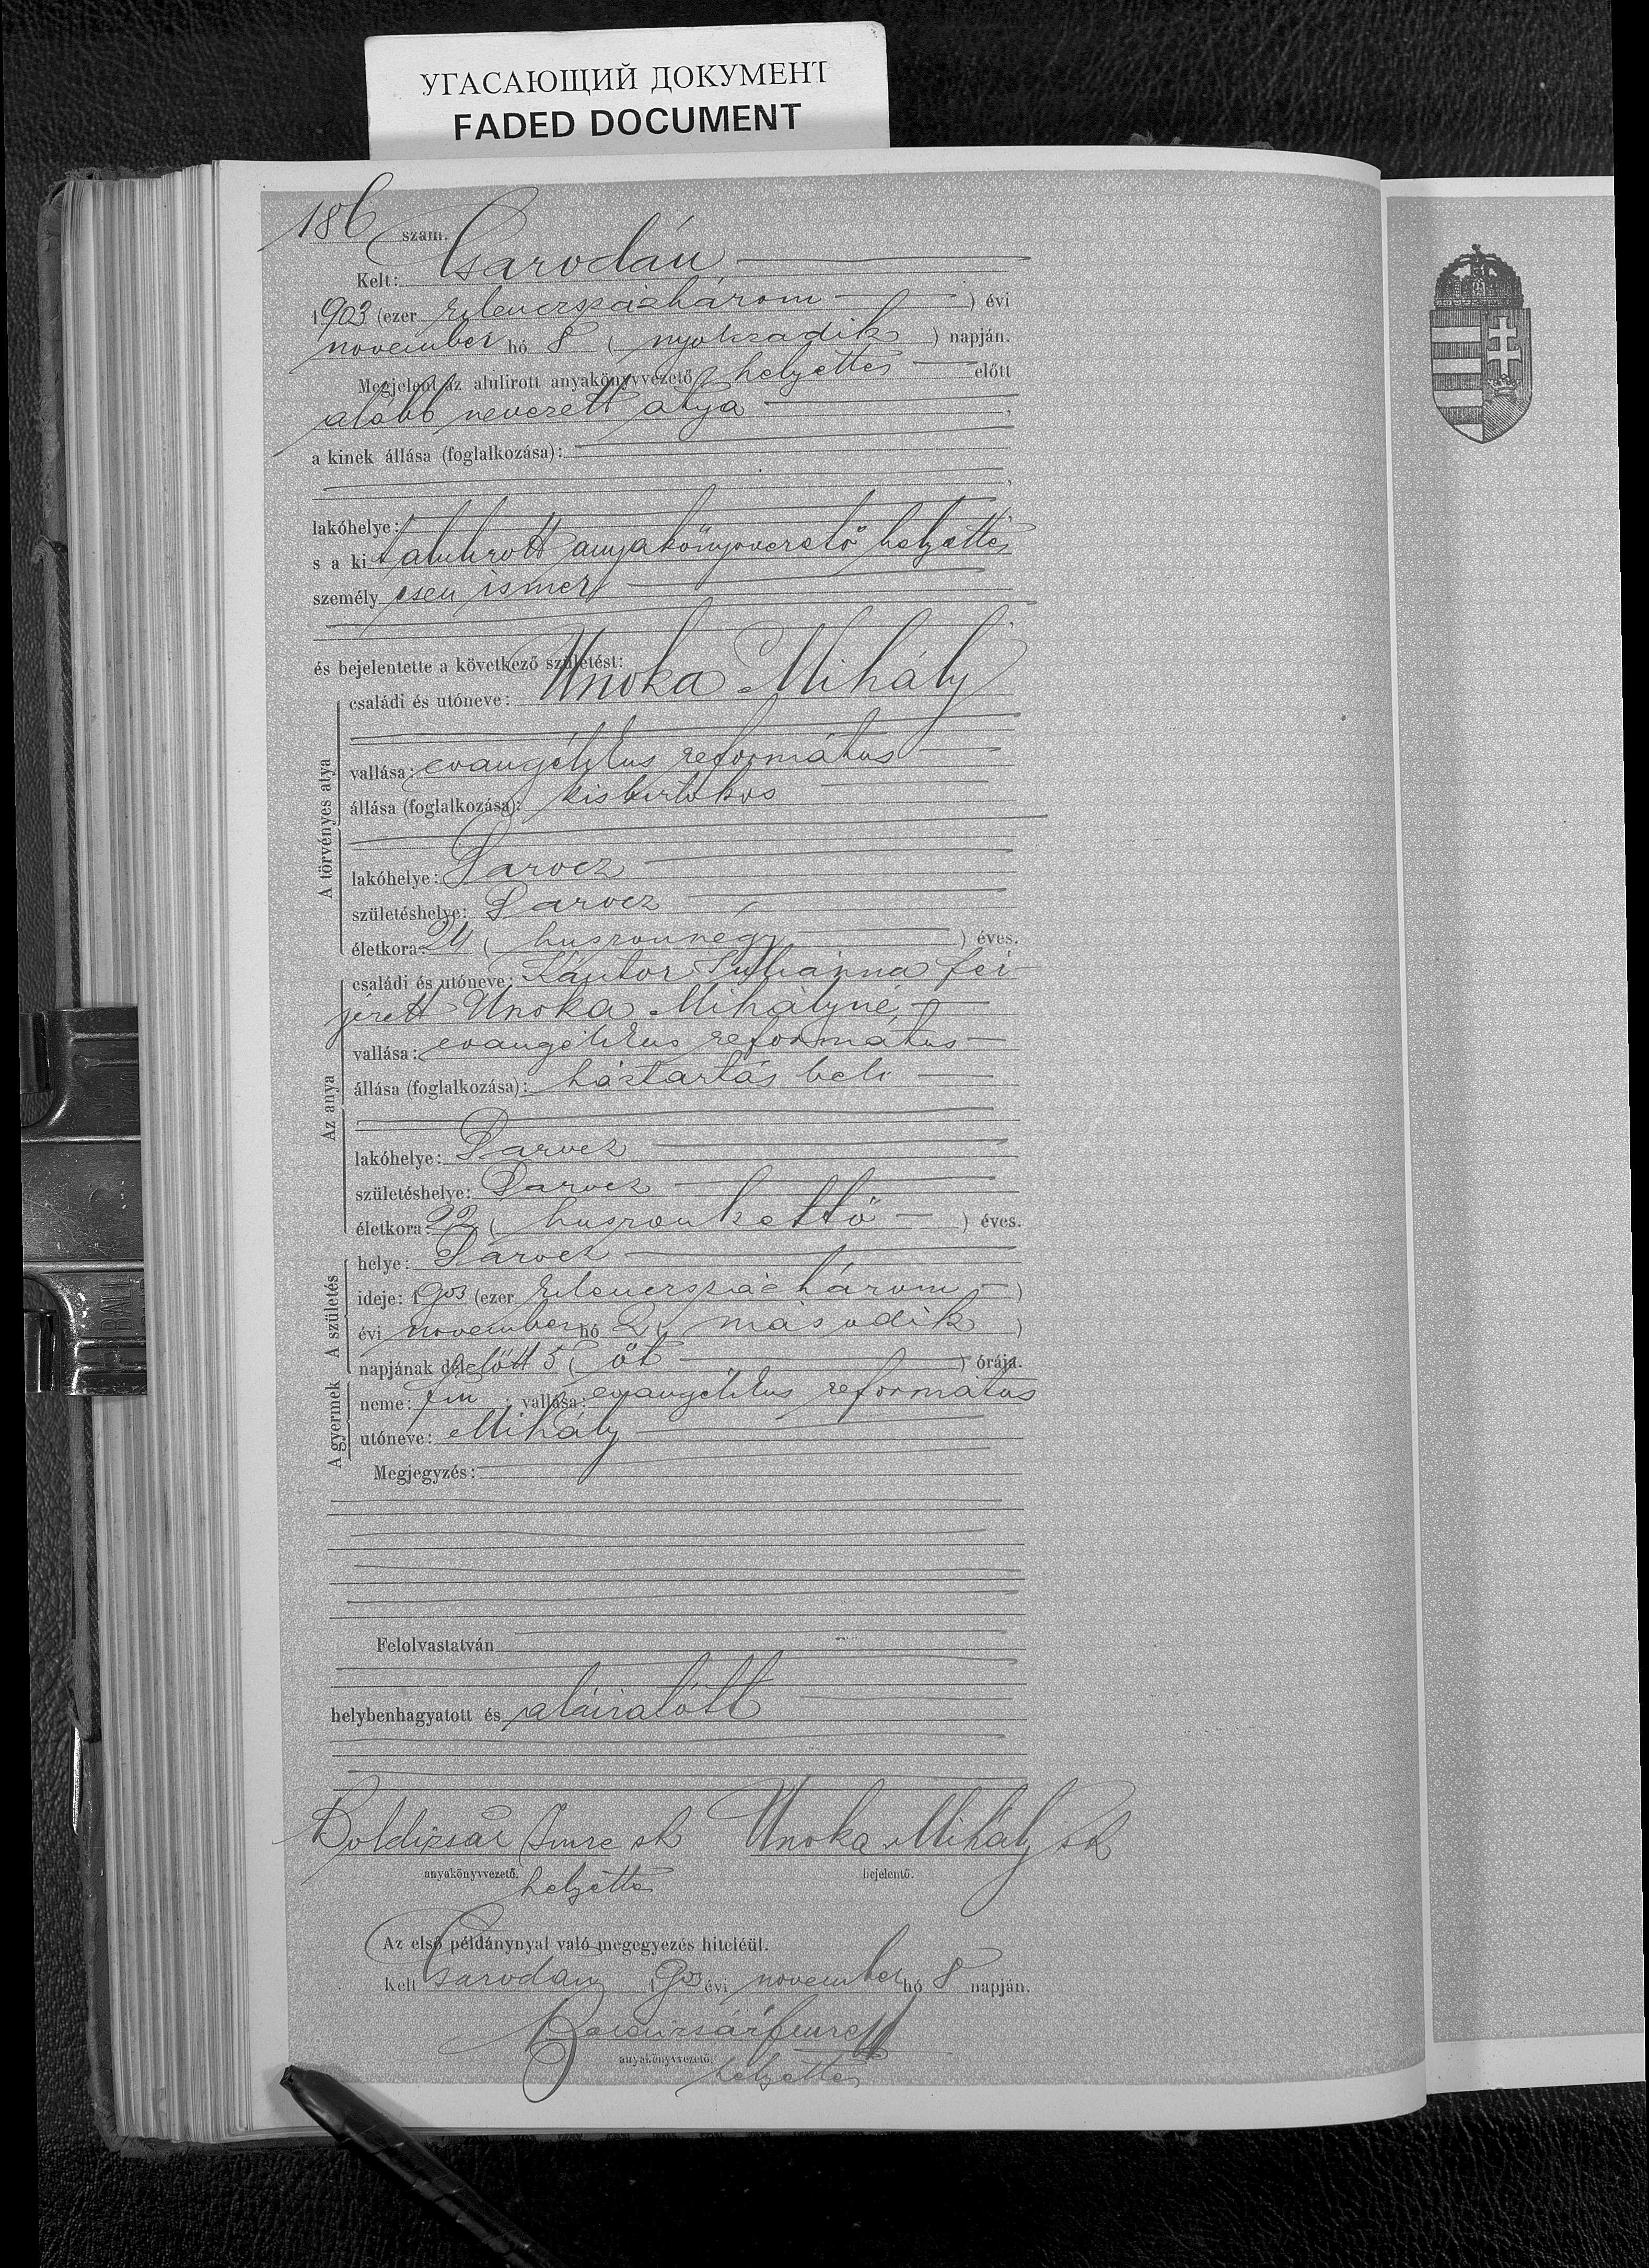 УГАСАЮЩИЙ ДОКУМЕНТ
FADED DOCUMENT
186 szám.
Kelt: Csarodán
1903 (ezer kilenczszázhárom) évi
november hó 8 (nyolczadik) napján.
Megjelent az alulirott anyakönyvvezető helyettes előtt
alább nevezett atya,
a kinek állása (foglalkozása):
lakóhelye:
s a kit alulirott anyakönyvvezető helyettes
személyesen ismer,
és bejelentette a következő születést:
A törvényes atya
családi és utóneve: Unoka Mihály
vallása: evangélikus református
állása (foglalkozása): kisbirtokos
lakóhelye:
születéshelye:
életkora: 24 (huszonnégy) éves.
Az anya
családi és utóneve: Kántor Juliánna fér
jezett Unoka Mihályné,
vallása: evangélikus református
állása (foglalkozása): háztartás beli
lakóhelye:
születéshelye:
életkora: 22 (huszonkettő) éves.
A születés
helye:
ideje: 1903 (ezer kilenczszázhárom)
évi november hó 2 (második)
napjának délelőtt 5 (öt) órája.
A gyermek
neme: fiu; vallása: evangélikus református
utóneve: Mihály
Megjegyzés:
Felolvastatván
helybenhagyatott és aláiratott
Boldizsár Imre sk Unoka Mihály sk
anyakönyvvezető. bejelentő.
helyettes
Az első példánynyal való megegyezés hiteléül.
Kelt Csarodán 1903 évi november hó 8 napján.
Boldizsár Imre
anyakönyvvezető.
helyettes